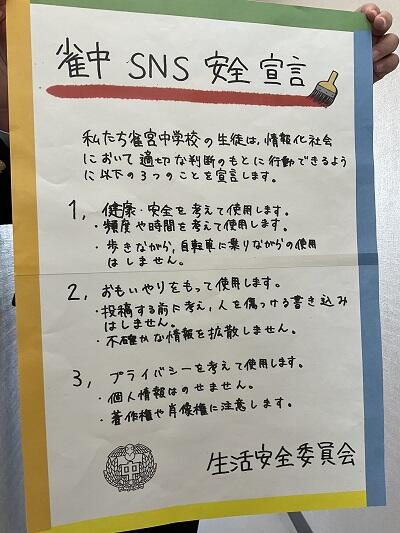 雀中 SNS 安全 宣言
私たち雀宮中学校の生徒は、情報化社会
において 適切な判断のもとに行動できるよう
に以下の3つのことを宣言します。
1, 健康・安全を考えて使用します。
・頻度や時間を考えて使用します。
・歩きながら、自転車に乗りながらの使用
はしません。
2, おもいやりをもって使用します。
・投稿する前に考え、人を傷つける書き込み
はしません。
・不確かな情報を拡散しません。
3, プライバシーを考えて使用します。
・個人情報はのせません。
・著作権や肖像権に注意します。
中
生活安全委員会